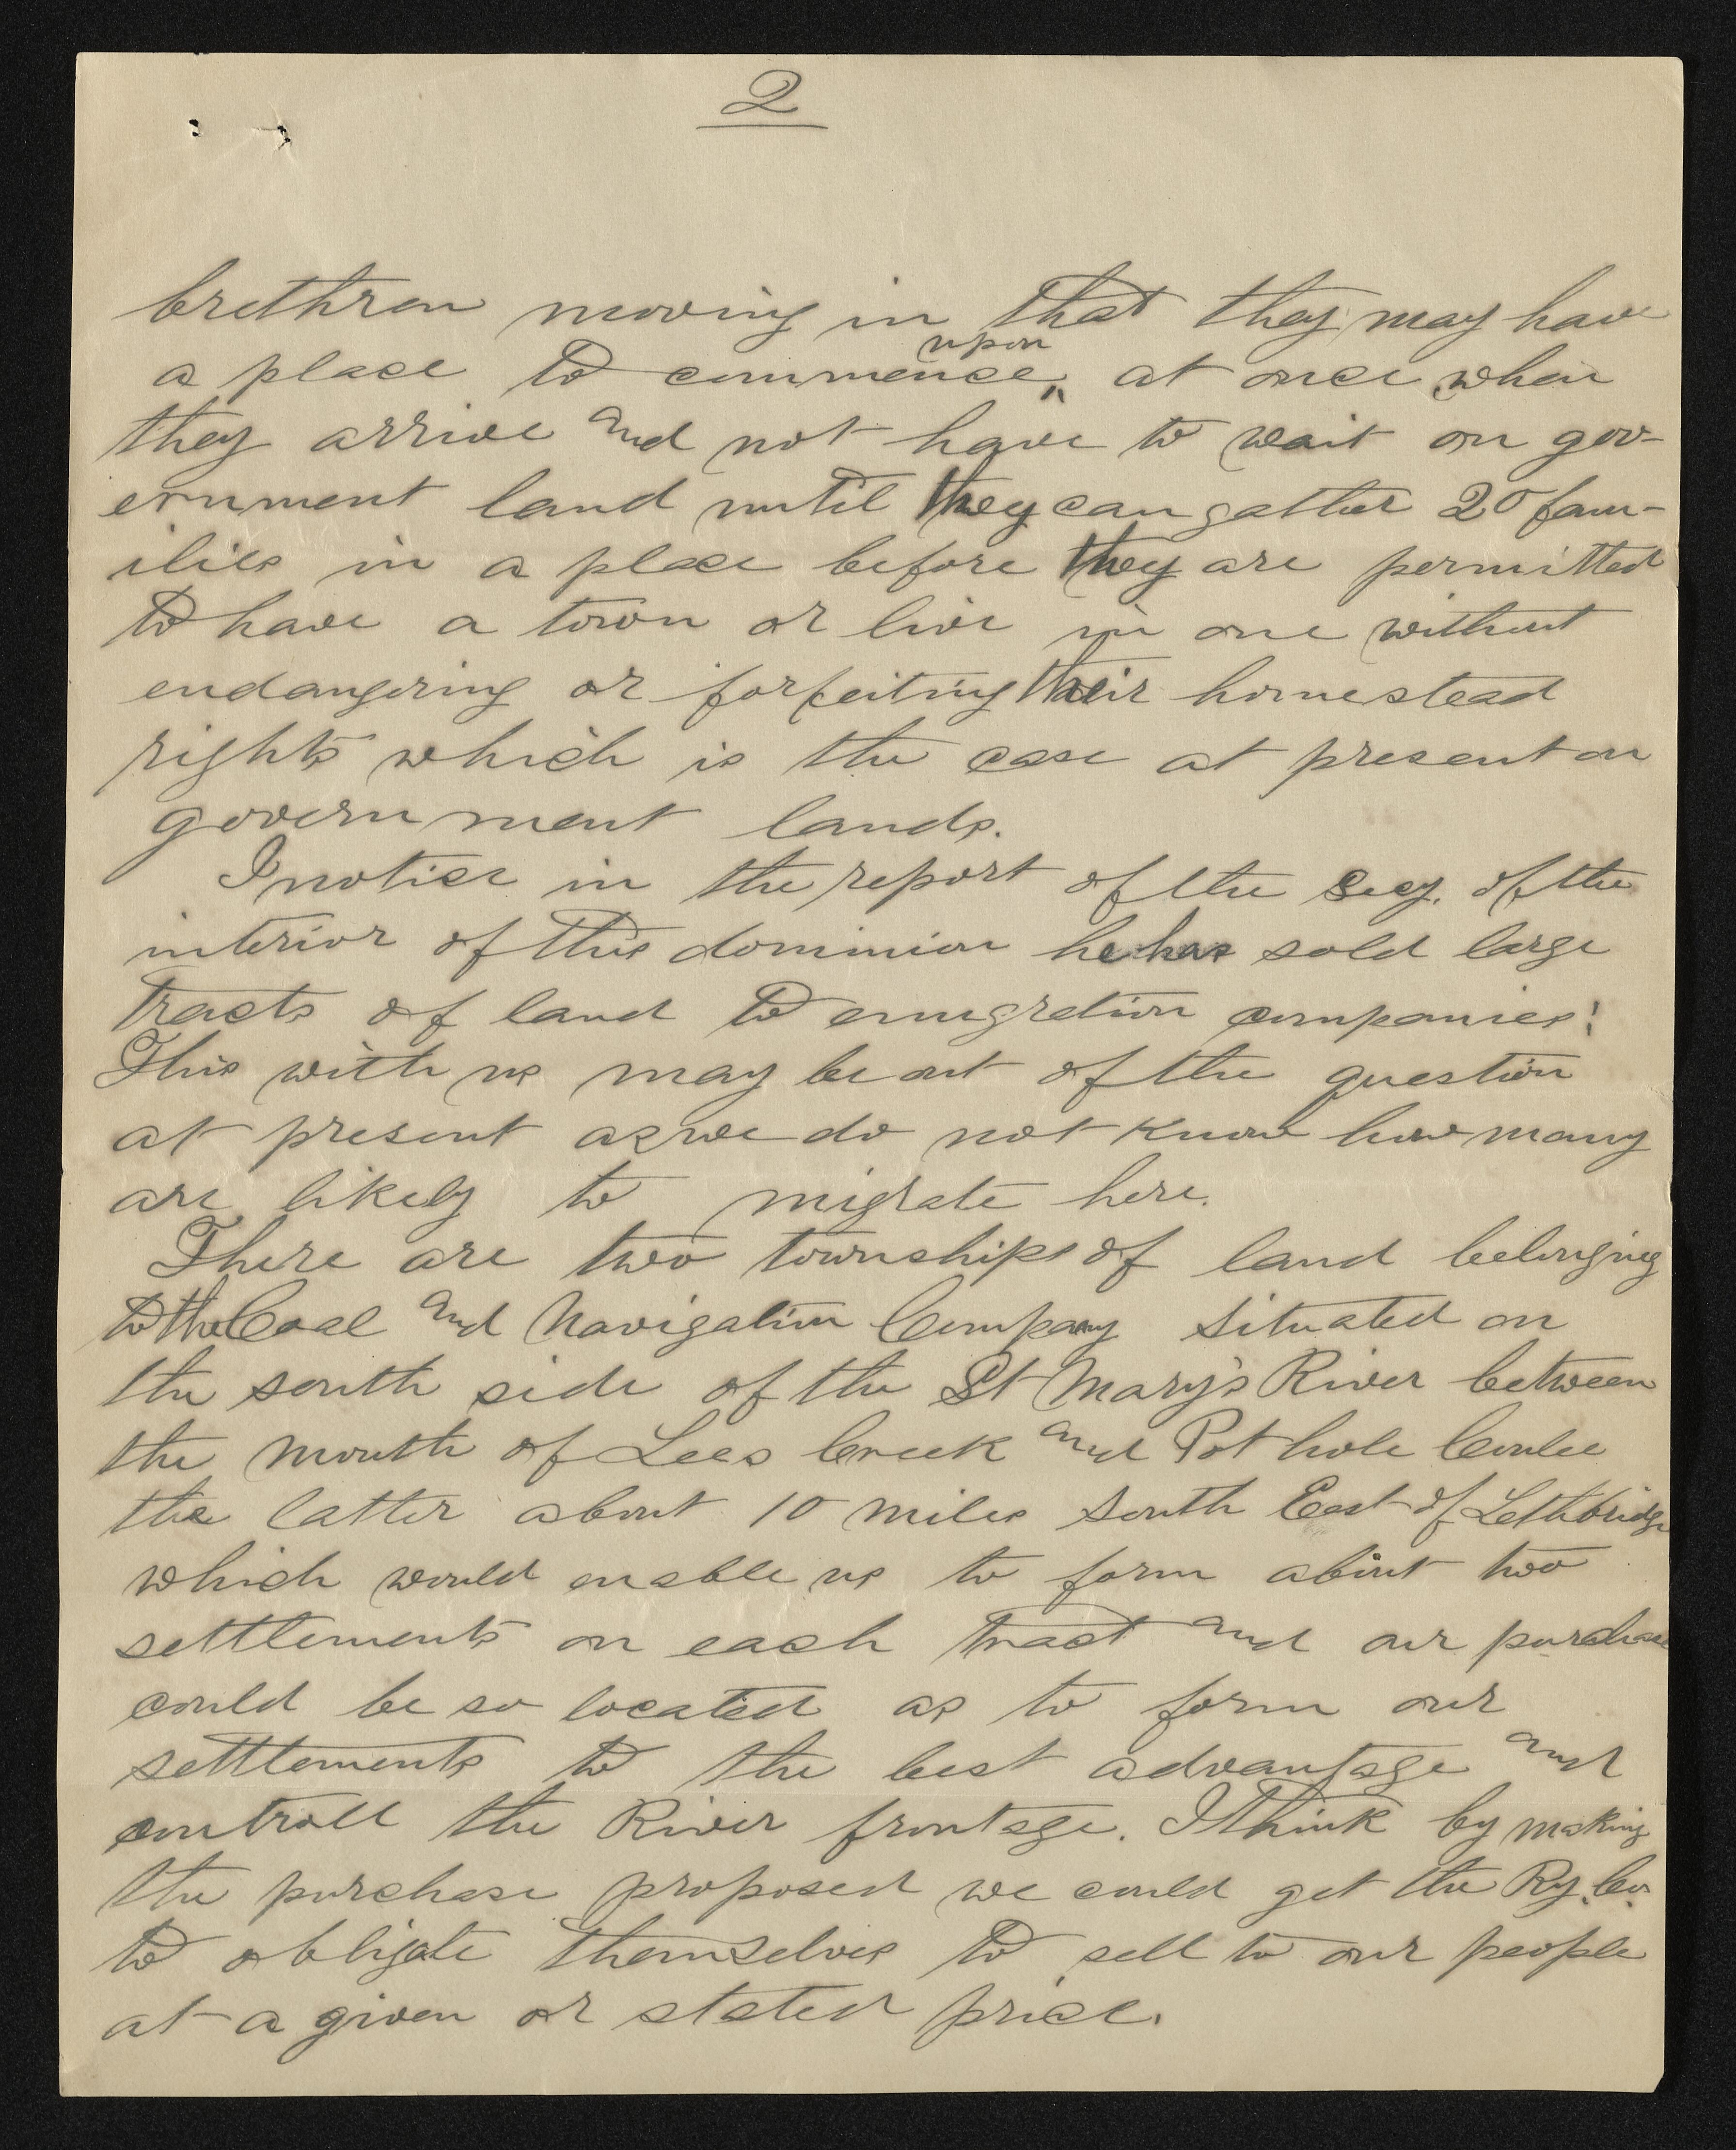 2
brethren moving in that they may have
upon
a place to commence ‸ at once when
they arrive and not have to wait on gov-
ernment land until they can gather 20 fam-
ilies in a place before they are permitted
to have a town or live in one without
endangering or forfeiting their homestead
rights which is the case at present on
government lands.
I notice in the report of the Secy. of the
interior of this dominion he has sold large
tracts of land to emigration companies;
This with us may be out of the question
at present as we do not know how many
are likely to migrate here.
There are two townships of land belonging
to the Coal and Navigation Company situated on
the south side of the St Mary's River between
the mouth of Lees Creek and Pot hole Coulee
the latter about 10 miles South East of Lethbridge
which would enable us to form about two
settlements on each tract and our purchase
could be so located as to form our
settlements to the best advantage and
controll the River frontage. I think by making
the purchase proposed we could get the Ry. Co.
to obligate themselves to sell to our people
at a given or stated price.